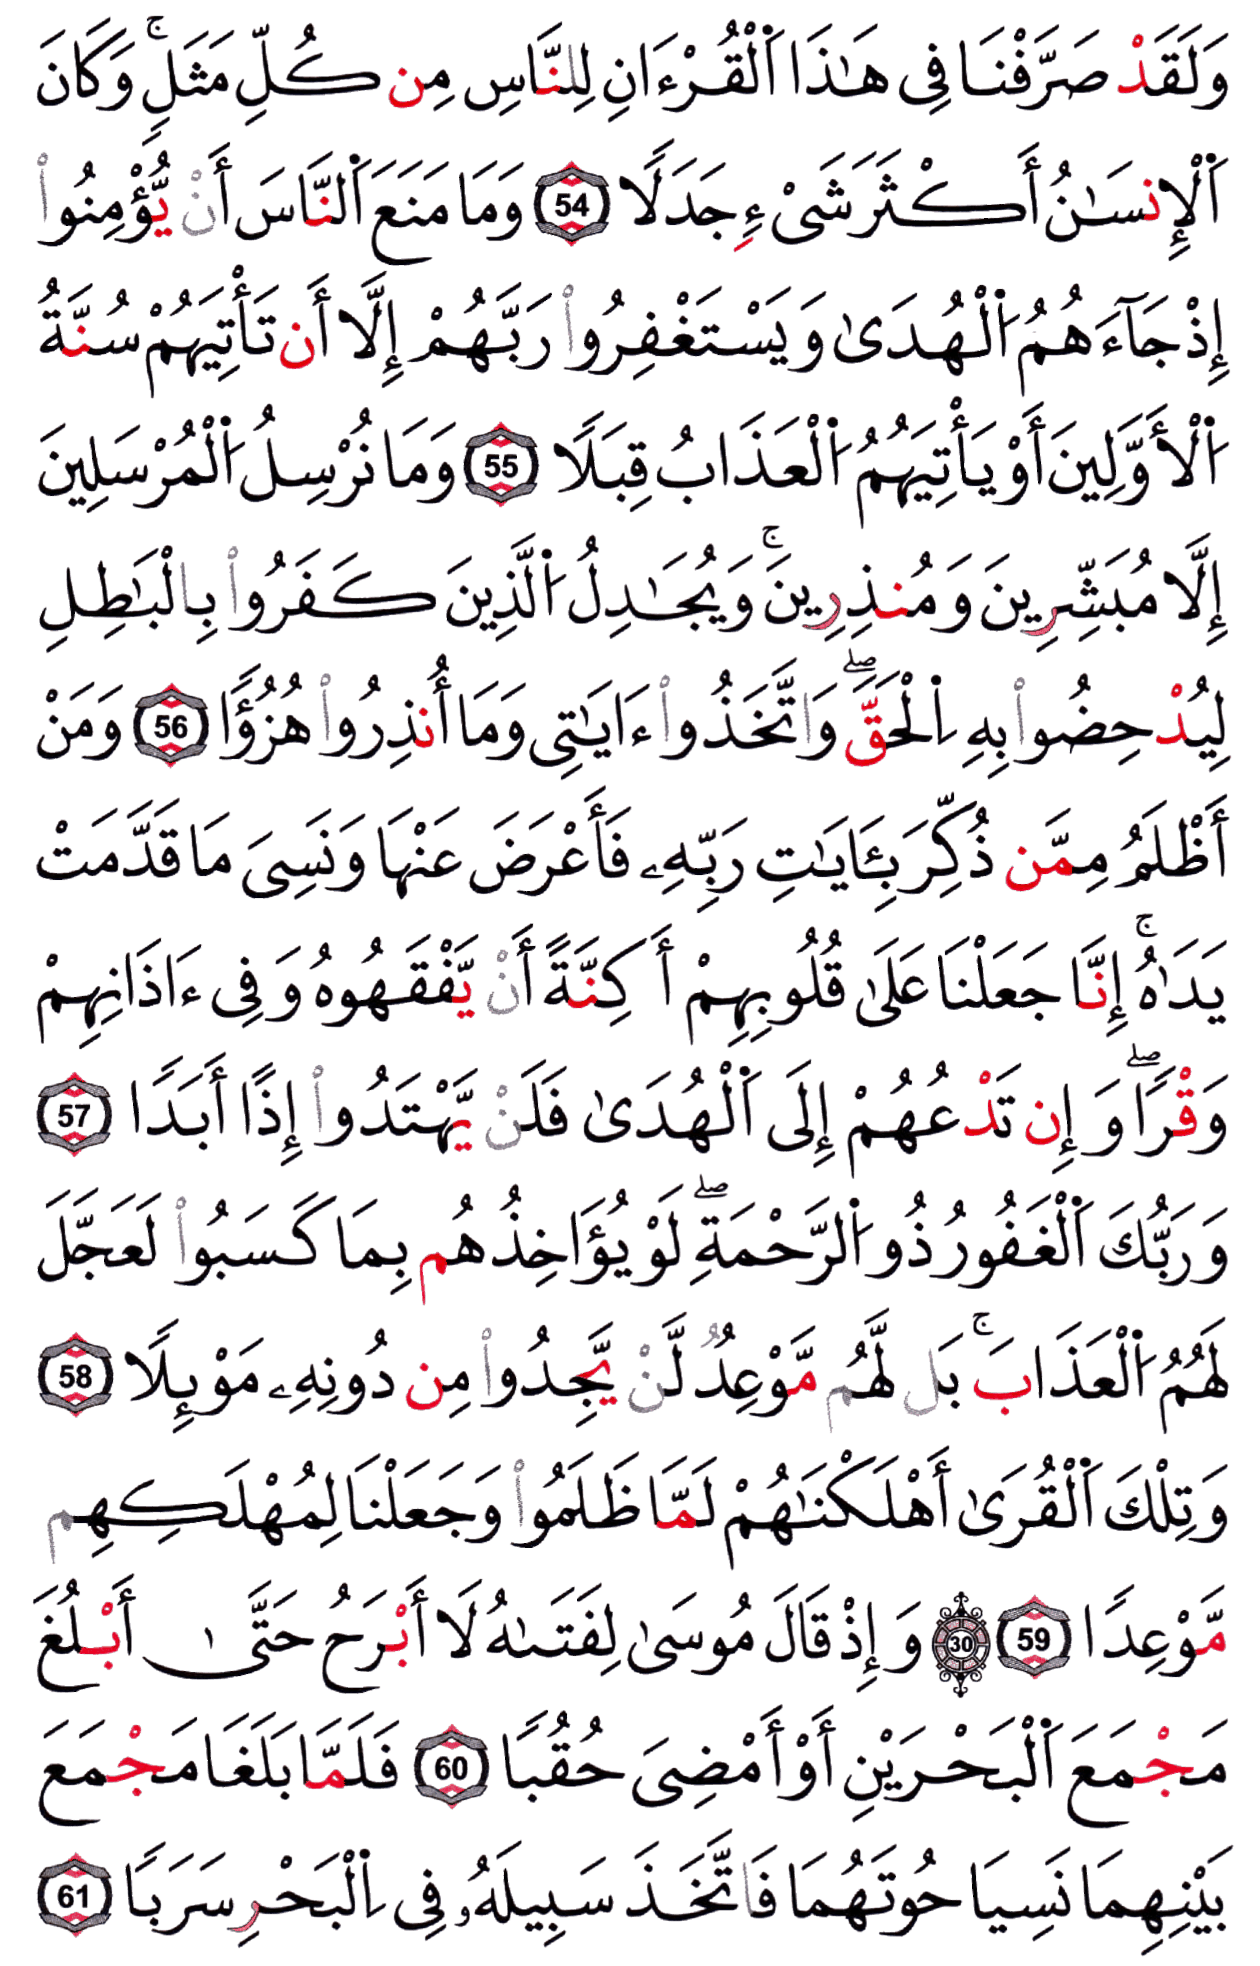 وَلَقَدْ صَرَّفْنَا فِي هَٰذَا ٱلْقُرْءَانِ لِلنَّاسِ مِن كُلِّ مَثَلٍۚ وَكَانَ
ٱلْإِنسَٰنُ أَكْثَرَ شَيْءٍ جَدَلًا 54 وَمَا مَنَعَ ٱلنَّاسَ أَنْ يُّؤْمِنُوا۟
إِذْ جَآءَهُمُ ٱلْهُدَىٰ وَيَسْتَغْفِرُوا۟ رَبَّهُمْ إِلَّا أَن تَأْتِيَهُمْ سُنَّةُ
ٱلْأَوَّلِينَ أَوْ يَأْتِيَهُمُ ٱلْعَذَابُ قِبَلًا 55 وَمَا نُرْسِلُ ٱلْمُرْسَلِينَ
إِلَّا مُبَشِّرِينَ وَمُنذِرِينَۚ وَيُجَٰدِلُ ٱلَّذِينَ كَفَرُوا۟ بِالْبَٰطِلِ
لِيُدْحِضُوا۟ بِهِ ٱلْحَقَّۖ وَاتَّخَذُوا۟ ءَايَٰتِي وَمَا أُنذِرُوا۟ هُزُؤًا 56 وَمَنْ
أَظْلَمُ مِمَّن ذُكِّرَ بِـَٔايَٰتِ رَبِّهِۦ فَأَعْرَضَ عَنْهَا وَنَسِيَ مَا قَدَّمَتْ
يَدَاهُۚ إِنَّا جَعَلْنَا عَلَىٰ قُلُوبِهِمْ أَكِنَّةً أَنْ يَّفْقَهُوهُ وَفِي ءَاذَانِهِمْ
وَقْرًاۖ وَإِن تَدْعُهُمْ إِلَى ٱلْهُدَىٰ فَلَنْ يَّهْتَدُوا۟ إِذًا أَبَدًا 57
وَرَبُّكَ ٱلْغَفُورُ ذُو ٱلرَّحْمَةِۖ لَوْ يُؤَاخِذُهُم بِمَا كَسَبُوا۟ لَعَجَّلَ
لَهُمُ ٱلْعَذَابَۚ بَل لَّهُم مَّوْعِدٌ لَّنْ يَّجِدُوا۟ مِن دُونِهِۦ مَوْئِلًا 58
وَتِلْكَ ٱلْقُرَىٰ أَهْلَكْنَٰهُمْ لَمَّا ظَلَمُوا۟ وَجَعَلْنَا لِمُهْلَكِهِم
مَّوْعِدًا 59 30 وَإِذْ قَالَ مُوسَىٰ لِفَتَىٰهُ لَا أَبْرَحُ حَتَّىٰ أَبْلُغَ
مَجْمَعَ ٱلْبَحْرَيْنِ أَوْ أَمْضِيَ حُقُبًا 60 فَلَمَّا بَلَغَا مَجْمَعَ
بَيْنِهِمَا نَسِيَا حُوتَهُمَا فَاتَّخَذَ سَبِيلَهُۥ فِي ٱلْبَحْرِ سَرَبًا 61